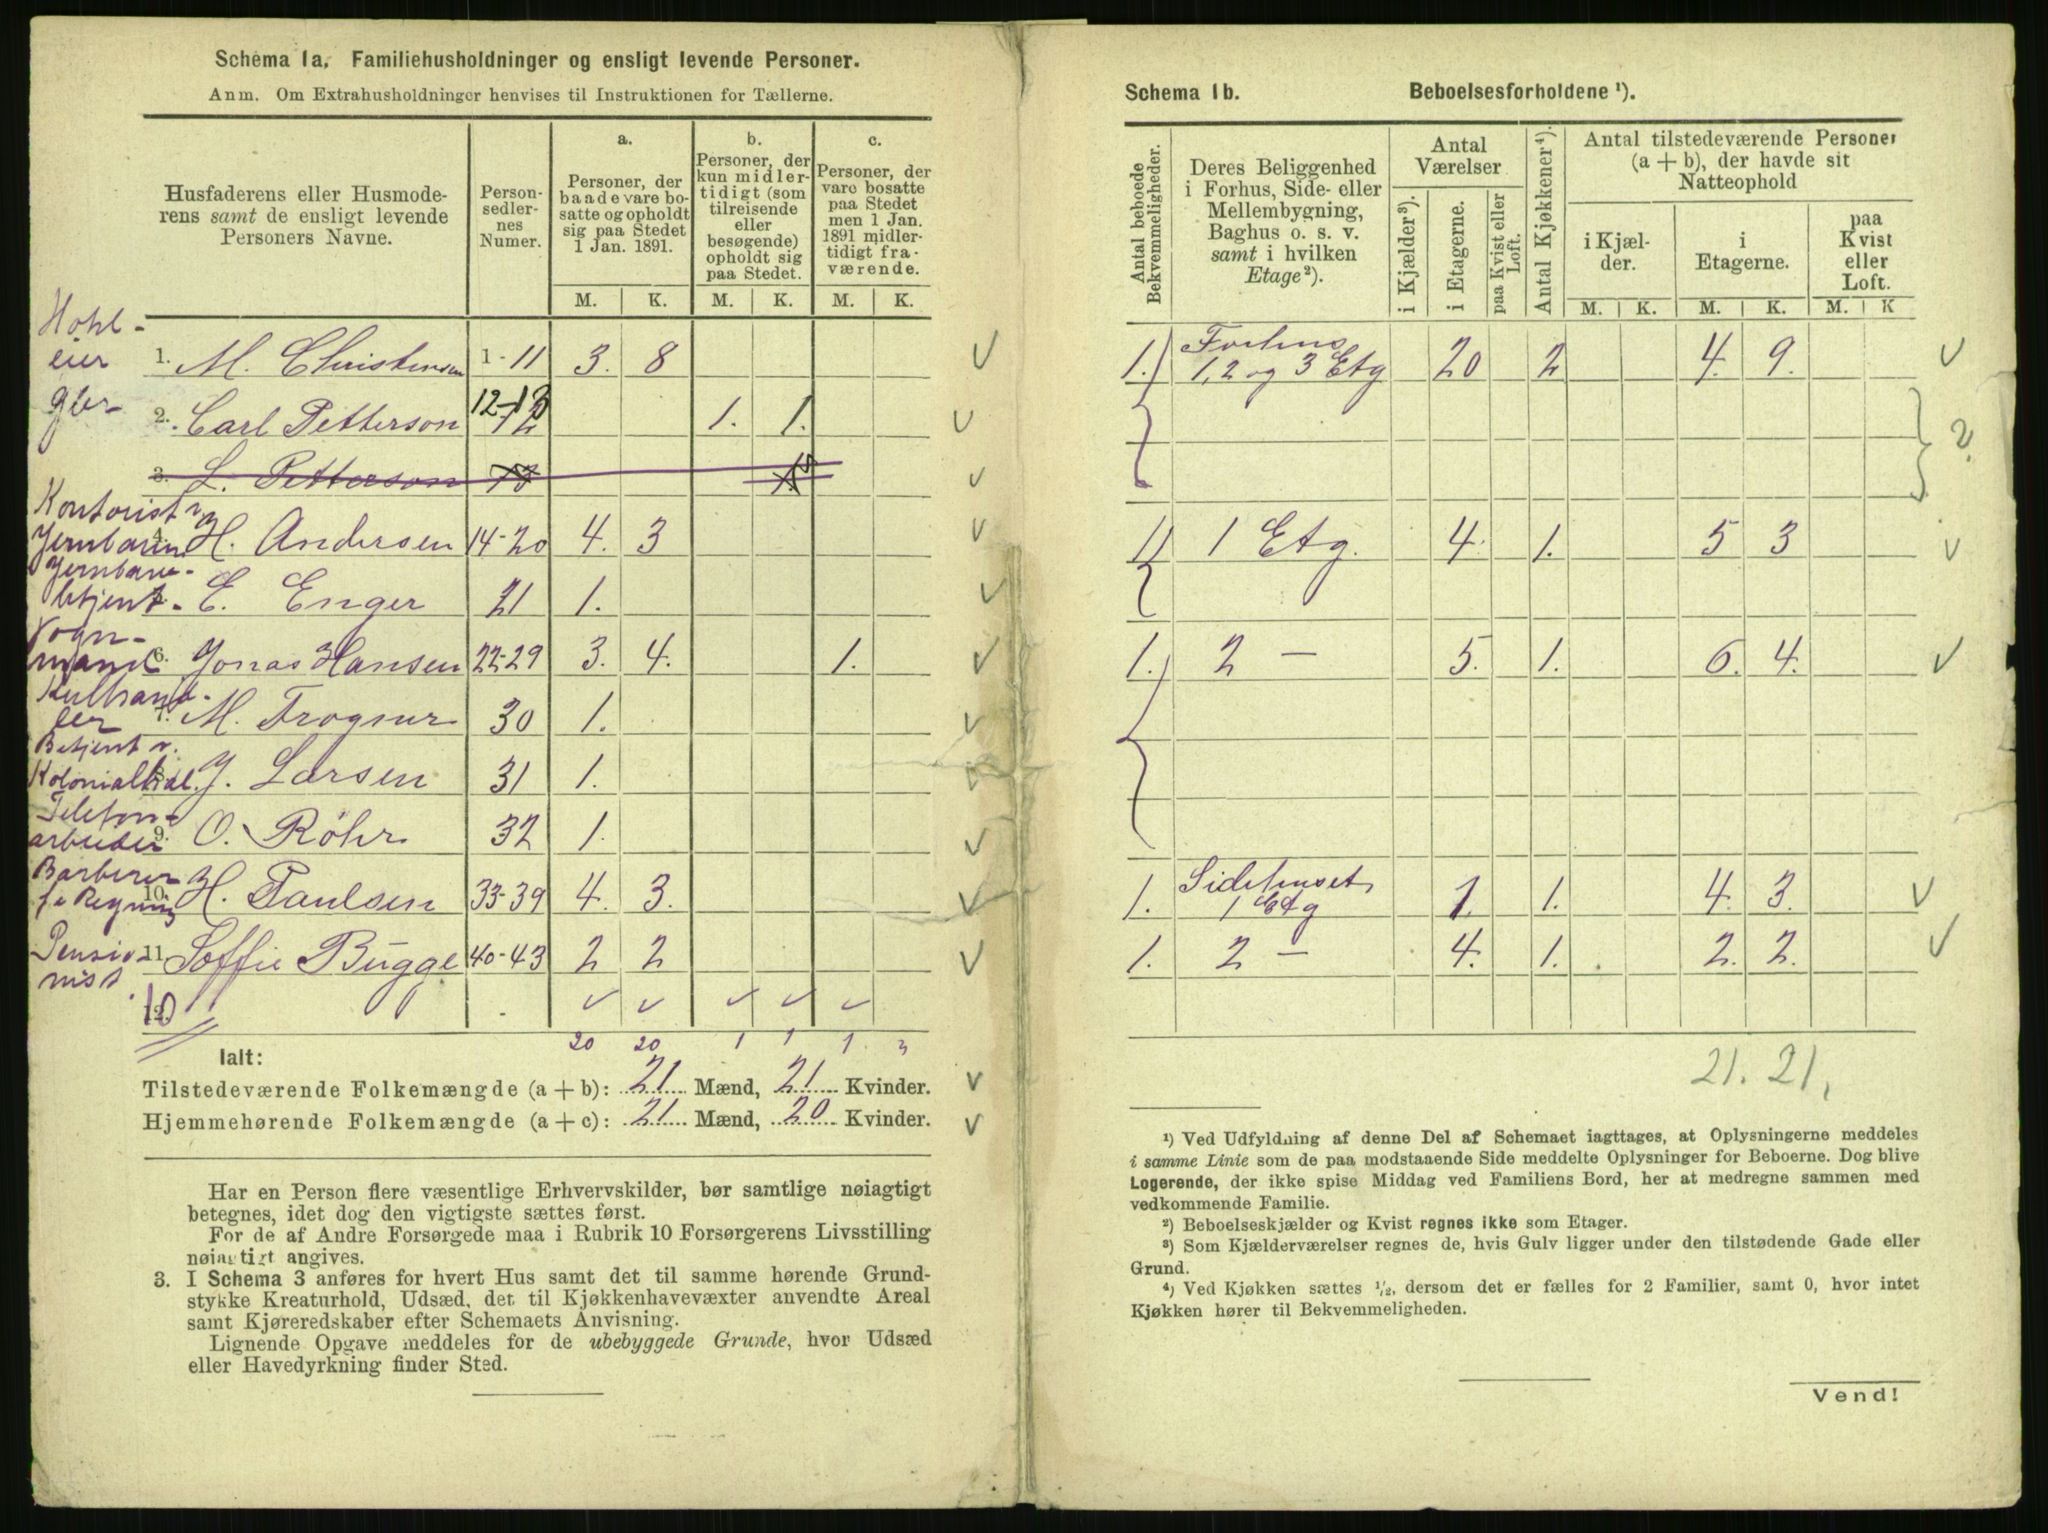 Schema 1a. Familiehusholdninger og ensligt levende Personer.
Anm. Om Extrahusholdninger henvises til Instruktionen for Tællerne.
Husfaderens eller Husmode-
rens samt de ensligt levende
Personers Navne.
Person-
sedler-
nes
Numer.
a.
Personer, der
baade vare bo-
satte og opholdt
sig paa Stedet
1 Jan. 1891.
b.
Personer, der
kun midler-
tidigt (som
tilreisende
eller
besøgende)
opholdt sig
paa Stedet.
c.
Personer, der
vare bosatte
paa Stedet
men 1 Jan.
1891 midler-
tidigt fra-
værende.
M. K. M. K. M. K.
1. M. Christensen 1-11 3. 8
2. Carl Petterson 12-13 1. 1.
3. L. Petterson
Kontorist v.
4. H. Andersen 14-20 4. 3
Jernbane-
betjent. E. Enger 21 1.
Vogn-
mand 6. Jonas Hansen 22-29 3. 4. 1.
Kulhand-
ler 7. M. Trogner 30 1.
Betjent v.
Kolonialhdl. 8. J. Larsen 31 1.
Telefon-
arbeider 9. O. Röhr 32 1.
Barberer
f. e. Regning 10. H. Paulsen 33-39 4. 3.
Pensio-
nist. 11. Soffie Bugge 40-43 2 2
12. 10
20 20 1 1 1.
Ialt:
Tilstedeværende Folkemængde (a + b): 21 Mænd, 21 Kvinder.
Hjemmehørende Folkemængde (a + c): 21 Mænd, 20 Kvinder.
Har en Person flere væsentlige Erhvervskilder, bør samtlige nøiagtigt
betegnes, idet dog den vigtigste sættes først.
For de af Andre Forsørgede maa i Rubrik 10 Forsørgerens Livsstilling
nøiagtigt angives.
3. I Schema 3 anføres for hvert Hus samt det til samme hørende Grund-
stykke Kreaturhold, Udsæd, det til Kjøkkenhavevæxter anvendte Areal
samt Kjøreredskaber efter Schemaets Anvisning.
Lignende Opgave meddeles for de ubebyggede Grunde, hvor Udsæd
eller Havedyrkning finder Sted.
Schema 1b. Beboelsesforholdene ¹).
Antal beboede
Bekvemmeligheder.
Deres Beliggenhed
i Forhus, Side- eller
Mellembygning,
Baghus o. s. v.
samt i hvilken
Etage²).
Antal
Værelser
i Kjælder³).
i Etagerne.
paa Kvist eller
Loft.
Antal Kjøkkener⁴).
Antal tilstedeværende Personer
(a + b), der havde sit
Natteophold
i Kjæl-
der.
i
Etagerne.
paa
Kvist
eller
Loft.
M. K. M. K. M. K
Forhus
1. 1, 2 og 3 Etg 20 2 4. 9.
?
1. 1 Etg. 4. 1. 5 3
1. 2 — 5. 1. 6. 4.
Sidehuset,
1. 1 Etg 1 1. 4. 3.
1. 2 — 4. 1. 2. 2.
21. 21.
¹) Ved Udfyldning af denne Del af Schemaet iagttages, at Oplysningerne meddeles
i samme Linie som de paa modstaaende Side meddelte Oplysninger for Beboerne. Dog blive
Logerende, der ikke spise Middag ved Familiens Bord, her at medregne sammen med
vedkommende Familie.
²) Beboelseskjælder og Kvist regnes ikke som Etager.
³) Som Kjælderværelser regnes de, hvis Gulv ligger under den tilstødende Gade eller
Grund.
⁴) Ved Kjøkken sættes ½, dersom det er fælles for 2 Familier, samt 0, hvor intet
Kjøkken hører til Bekvemmeligheden.
Vend!